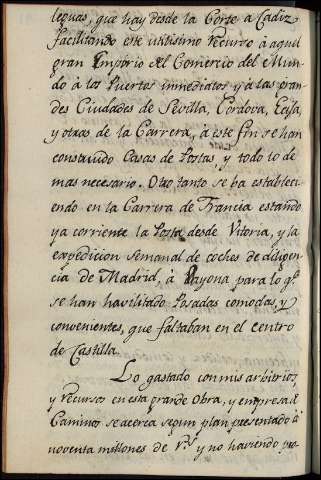 leguas, que hay desde la Corte a Cadiz
facilitando este utilisimo recurso à aquel
gran Emporio del Comercio del Mun-
do à los Puertos inmediatos y à las gran-
des Ciudades de Sevilla, Cordova, Ecija,
y otras de la Carrera, à este fin se han
construido Casas de Postas, y todo lo de
mas necesario. Otro tanto se ba estableci-
endo en la Carrera de Francia estando
ya corriente la Posta desde Vitoria, y la
expedicion semanal de coches de diligen
cia de Madrid, à Bayona para lo q.e
se han havilitado Posadas comodas, y
convenientes, que faltaban en el centro
de Castilla.
Lo gastado con mis arbitrios,
y recursos en esta grande Obra, y empresa de
Caminos se acerca segun plan presentado à
noventa millones de r.s y no haviendo pro-